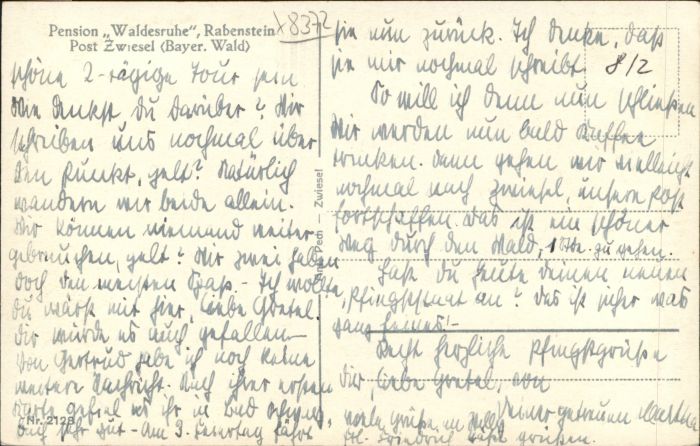 Pension „Waldesruhe", Rabenstein
Post Zwiesel (Bayer. Wald)
x8372
8/2
schöne 2-tägige Tour sein
Wie denkst du darüber? Wir
schreiben uns nochmal über
den Punkt, gelt? Natürlich
wandern wir beide allein.
Wir können niemand weiter
gebrauchen, gelt? Wir zwei haben
doch den meisten Spaß.- Ich wollte,
du wärst mir hier, liebe Gretel.
Dir würde es auch gefallen.
Von Gertrud habe ich noch keine
weitere Nachricht. Nach ihrer ersten
Karte gefiel es ihr in Bad
auch sehr gut - Am 3. Feiertag fährt
Nr. 2128
Pech — Zwiesel
sie nun zurück. Ich denke, daß
sie mir nochmal schreibt.
So will ich denn nun schließen
Wir werden nun bald Kaffee
trinken. Dann gehen wir vielleicht
nochmal nach Zwiesel, unsere Post
fortschaffen. Das ist ein schöner
Weg durch den Wald, 1 Std. zu gehen.
Hast du heute deinen neuen
Pfingststaat an? Das ist sicher was
ganz feines!-
Recht herzliche Pfingstgrüße
dir, liebe Gretel, von
deiner getreuen
viele Grüße
Frl. läßt grüßen.